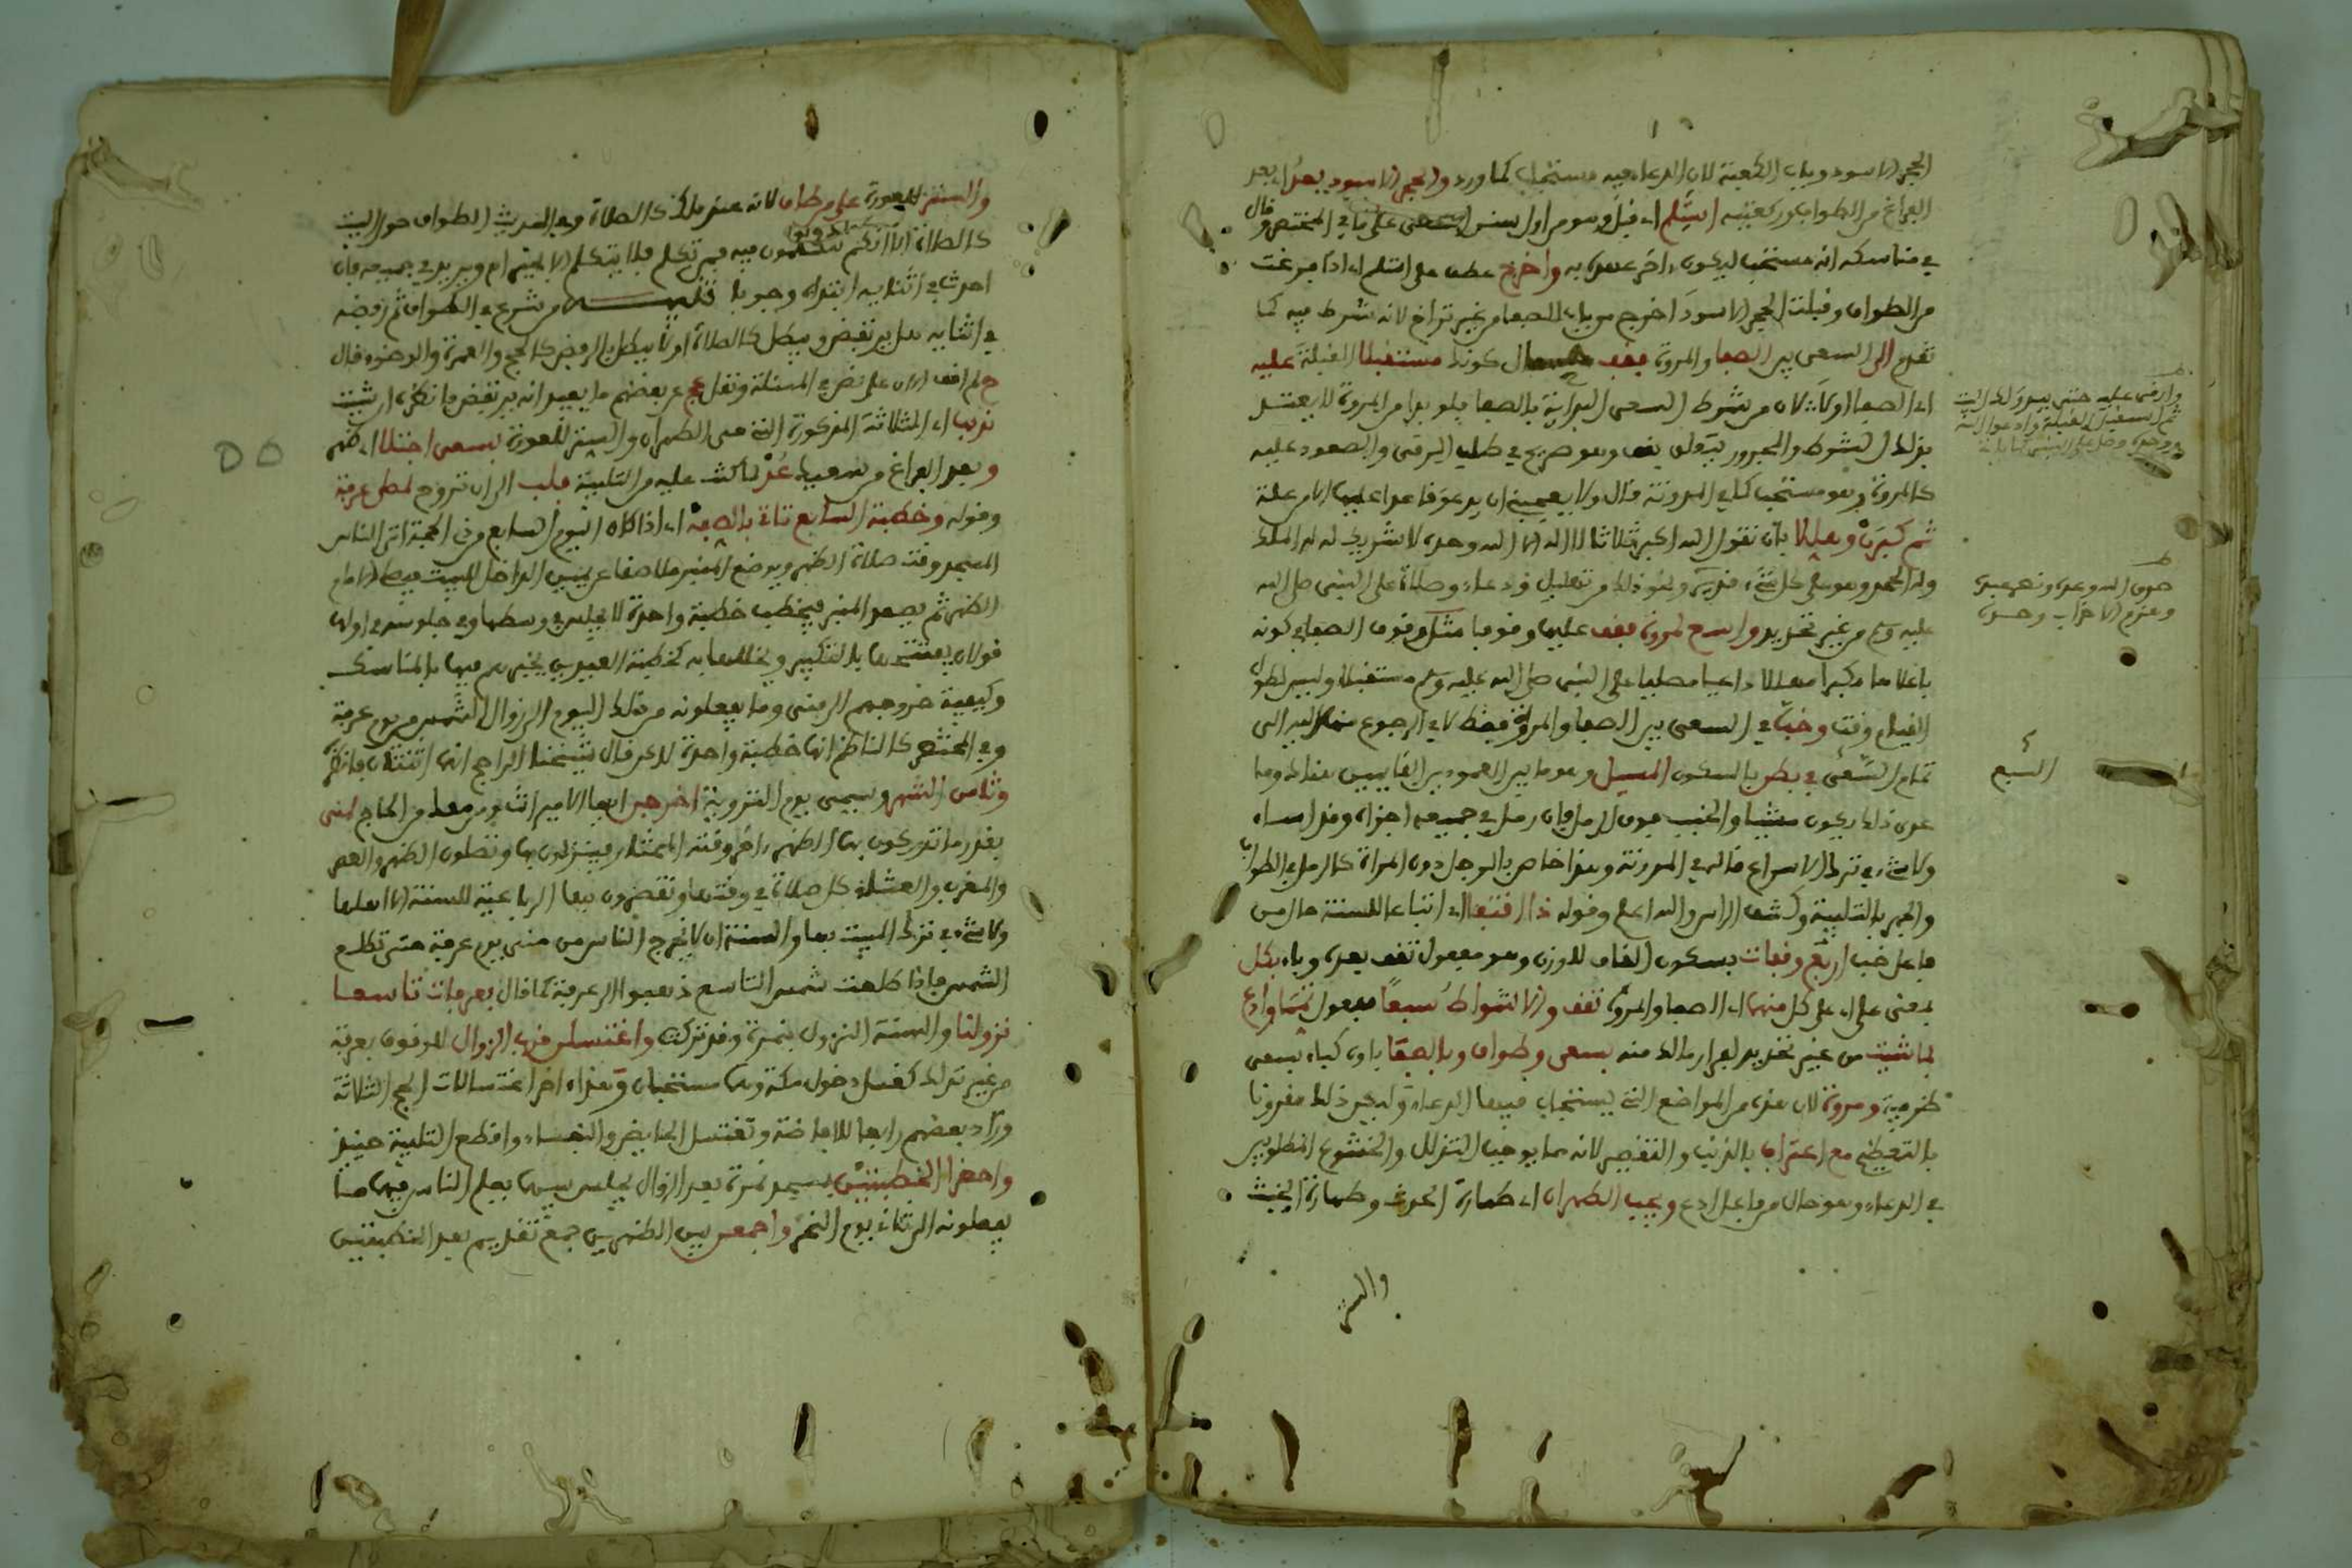 الحجر الاسود وباب الكعبة لان الدعاء فيه مستجاب كما ورد والحجر الاسود بعد اي بعد
الفراغ من الطواف وركعتيه استلم اي قبل وهو من اول سنن السعي على ما في المختصر وقال
في مناسكه انه مستحب ليكون اخر عهده به واخرج عطف على استلم اي اذا فرغت
من الطواف وقبلت الحجر الاسود اخرج من باب الصفا من غير تراخ لانه شرط فيه كما
تقدم الى السعي بين الصفا والمروة فقف حال كونك مستقبلا القبلة عليه
اي الصفا اولا لان من شرط السعي البداية بالصفا فلو بدا من المروة لا يعتد
بذلك الشوط والمجرور يتولى يقف وهو صريح في طلب الرقي والصعود عليه
كالمروة وهو مستحب كما في المدونة قال ولا يعجبني ان يدعو قاعدا عليهما الا من علة
ثم كبرن وهللا بان تقول الله اكبر ثلاثا لا اله الا الله وحده لا شريك له له الملك
وله الحمد وهو على كل شيء قدير ونحو ذلك من تهليل ودعاء وصلاة على النبي صلى الله
عليه وسلم من غير تحديد واسع لمروة فقف عليها وقوفا مثل وقوف الصفا في كونه
باعلاها مكبرا مهللا داعيا مصليا على النبي صلى الله عليه وسلم مستقبلا وليس لطول
القيام وقت وخب في السعي بين الصفا والمروة فقط لا في الرجوع منها الى
تمام السعي في بطن بالسكون المسيل وهو ما بين العمودين القايمين هناك وما
عدى ذلك يكون مشيا والخبب فوق الرمل فان رمل في جميعه اجزاه وقد اساء
ولا شيء في ترك الاسراع قاله في المدونة وهذا خاص بالرجل دون المراة كالرمل في الطواف
والجهر بالتلبية وكشف الراس والله اعلم وقوله ذا اقتفا اي اتباعا للسنة حال من
فاعل خب اربع وقفات بسكون القاف للوزن وهو مفعول تقف بعده وباء بكل
بمعنى على اي على كل منهما اي الصفا والمروة تقف والاشواط سبعا مفعول تمما وادع
بما شئت من غير تحديد لفرار مالك منه بسعي وطواف وبالصفا باؤه كباء بسعي
ظرفية ومروة لان هذه من المواضع التي يستجاب فيها الدعاء وليكن ذلك مقرونا
بالتعظيم مع اعتراف بالذنب والتقصير لانه مما يوجب التذلل والخشوع المطلوبين
في الدعاء وهو حال من فاعل ادع ويجب الطهران اي طهارة الحدث وطهارة الخبث
والستر
وارقى عليه حتى يبدو لك البيت
ثم استقبل القبلة وادعوا الله
صدق الله وعده ونصر عبده
وهزم الاحزاب وحده
السبع
والستر للعورة على من طاف لانه عند مالك كالصلاة وفي الحديث الطواف حول البيت
كالصلاة الا انكم تتكلمون فيه فمن تكلم فلا يتكلم الا بخير ام ويريد في جميعه فان
احدث في اثنايه ابتداه وجوبا تنبيه من شرع في الطواف ثم رفضه
في اثنايه هل يرتفض ويبطل كالصلاة او لا يبطل بالرفض كالحج والعمرة والوضوء قال
ح لم اقف الان على نص في المسئلة ونقل عج عن بعضهم ما يفيد انه يرتفض فانظره ان شئت
ندبا اي الثلاثة المذكورة التي هي الطهران والستر للعورة بسعي اجتلا اي ظهر
وبعد الفراغ من سعيك عد لما كنت عليه من التلبية فلب الى ان تروح لمصلى عرفة
وقوله وخطبة السابع تاتي بالصفه اي اذا كان اليوم السابع من ذي الحجة اتى الناس
المسجد وقت صلاة الظهر ويوضع المنبر ملاصقا عن يمين الداخل للبيت فيصلي الامام
الظهر ثم يصعد المنبر فيخطب خطبة واحدة لا يجلس في وسطها وفي جلوسه في اولها
قولان يفتتحها بالتكبير ويخللها به كخطبة العيدين يخبرهم فيها بالمناسك
وكيفية خروجهم الى منى وما يفعلونه من ذلك اليوم الى زوال الشمس من يوم عرفة
وفي المختصر كالناظم انها خطبة واحدة لاكن قال شيخنا الراجح انها اثنتان فانظره
وثامن الشهر ويسمى يوم التروية اخرجن ايها الامير انت ومن معك من الحاج لمنى
بقدر ما تدركون بها الظهر اخر وقته المختار فينزلون بها وتصلون الظهر والعصر
والمغرب والعشاء كل صلاة في وقتها وتقصرون فيها الرباعية للسنة الا اهلها
ولا شيء في ترك المبيت بها والسنة ان لا يخرج الناس من منى يوم عرفة حتى تطلع
الشمس فاذا طلعت شمس التاسع ذهبوا الى عرفة كما قال بعرفات تاسعا
نزولنا والسنة النزول بنمرة وقد تركت واغتسلن قرب الزوال للوقوف بعرفة
من غير تدلك كغسل دخول مكة وهما مستحبان وهذا اخر اغتسالات الحج الثلاثة
وزاد بعضهم رابعا للافاضة وتغتسل الحايض والنفساء واقطع التلبية حينئذ
واحضرا الخطبتين بمسجد نمرة بعد الزوال يجلس بينهما يعلم الناس فيهما ما
يفعلونه الى ثاني يوم النحر واجمعن بين الظهرين جمع تقديم بعد الخطبتين